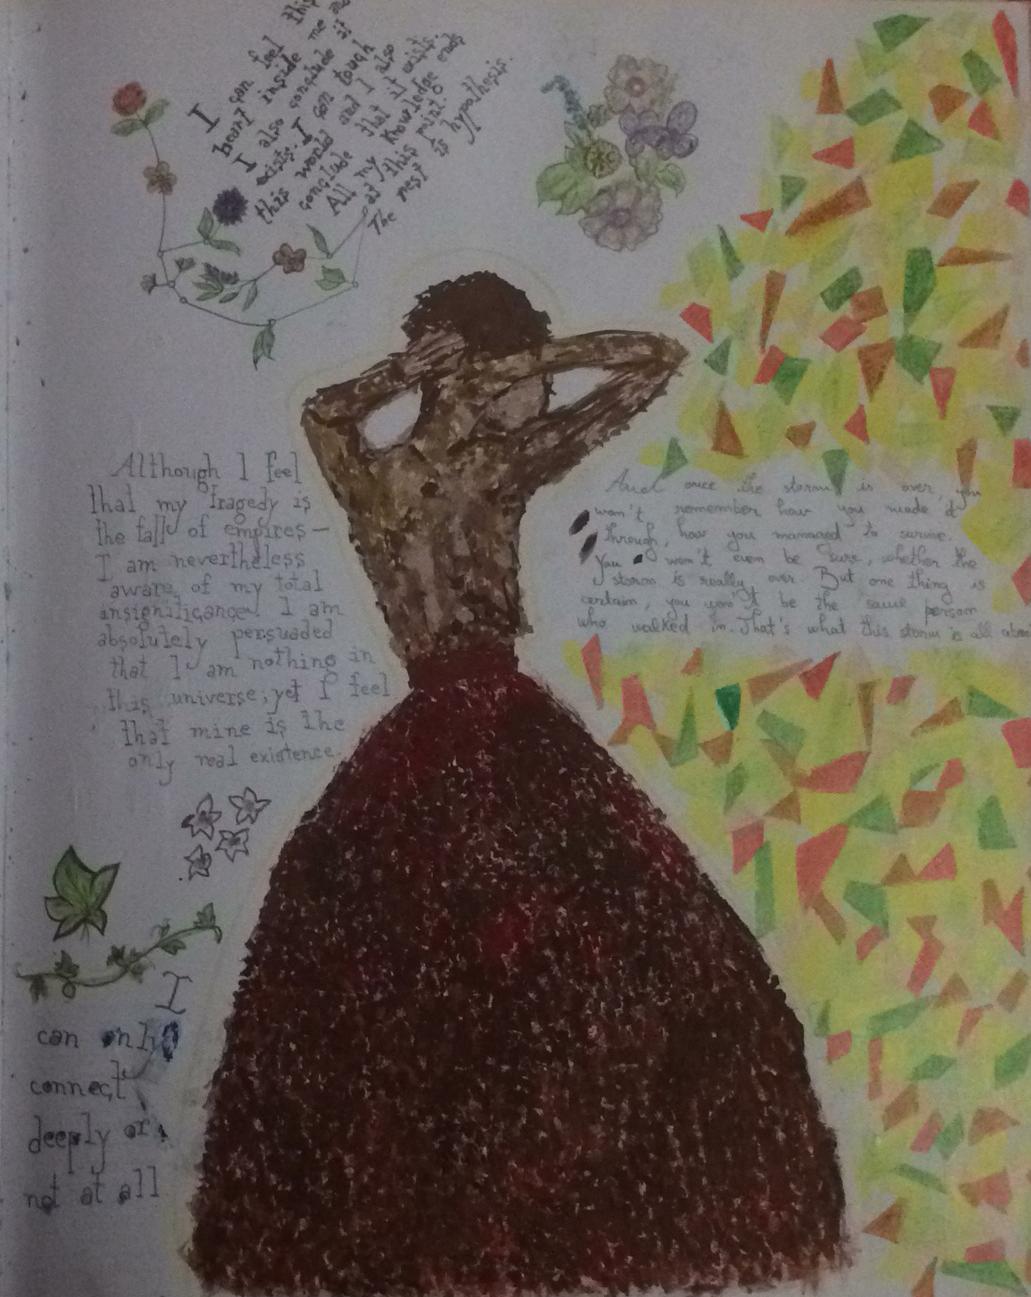 I can feel this
heart inside me and
I also conclude it
exists. I can touch
this world and I also
conclude that it exists.
All my knowledge ends
at this point.
The rest is hypothesis.
Although I feel
that my tragedy is
the fall of empires —
I am nevertheless
aware of my total
insignificance. I am
absolutely persuaded
that I am nothing in
this universe; yet I feel
that mine is the
only real existence.
And once the storm is over, you
won't remember how you made it
through, how you managed to survive.
You won't even be sure, whether the
storm is really over. But one thing is
certain, you won't be the same person
who walked in. That's what this storm is all
I
can only
connect
deeply or
not at all